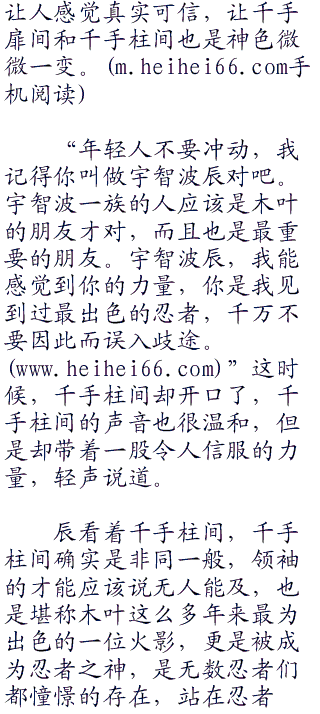 让人感觉真实可信，让千手
扉间和千手柱间也是神色微
微一变。(m.heihei66.com手
机阅读)
“年轻人不要冲动，我
记得你叫做宇智波辰对吧。
宇智波一族的人应该是木叶
的朋友才对，而且也是最重
要的朋友。宇智波辰，我能
感觉到你的力量，你是我见
到过最出色的忍者，千万不
要因此而误入歧途。
(www.heihei66.com)”这时
候，千手柱间却开口了，千
手柱间的声音也很温和，但
是却带着一股令人信服的力
量，轻声说道。
辰看着千手柱间，千手
柱间确实是非同一般，领袖
的才能应该说无人能及，也
是堪称木叶这么多年来最为
出色的一位火影，更是被成
为忍者之神，是无数忍者们
都憧憬的存在，站在忍者